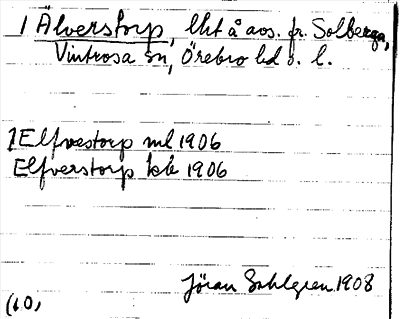 1 Älverstorp, lht å aos. fr. Solberga,
Vintrosa sn, Örebro hd o. l.
1 Elfvestorp ml 1906
Elfverstorp kk 1906
Jöran Sahlgren 1908
(60)